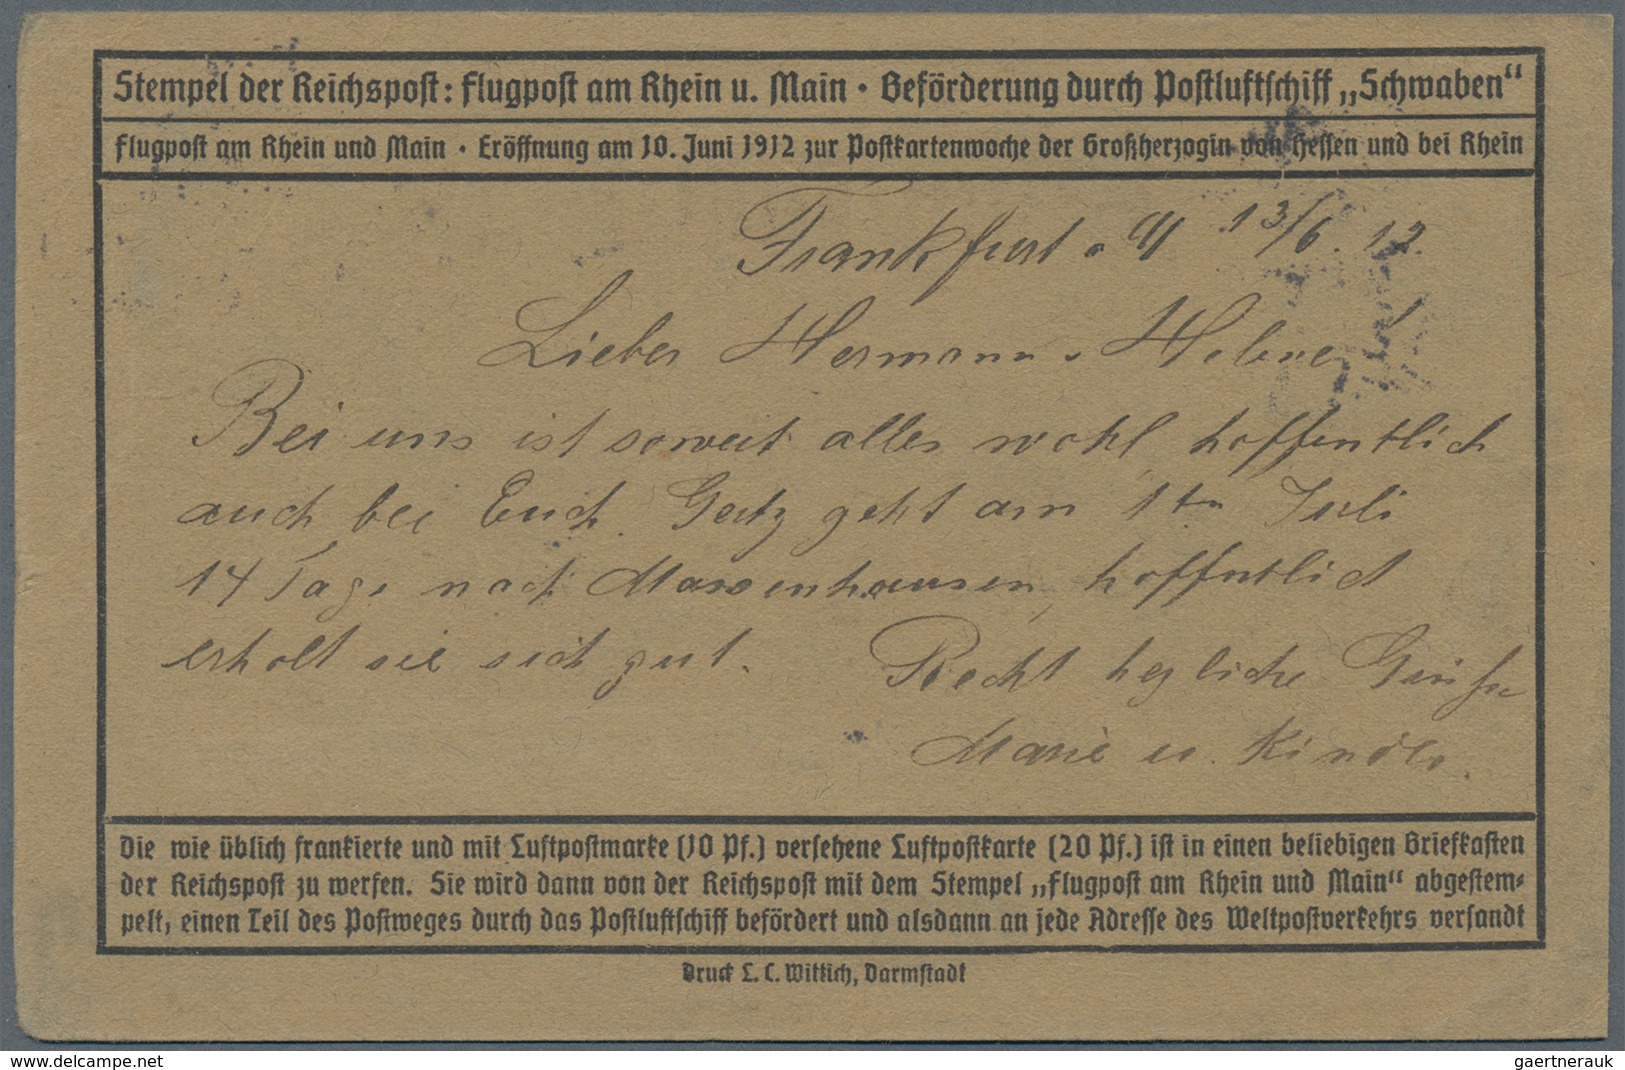 Stempel der Reichspost: Flugpost am Rhein u. Main · Beförderung durch Postluftschiff „Schwaben“
Flugpost am Rhein und Main · Eröffnung am 10. Juni 1912 zur Postkartenwoche der Großherzogin von Hessen und bei Rhein
Frankfurt a M 13/6. 12.
Lieber Hermann u Helene
Bei uns ist soweit alles wohl, hoffentlich
auch bei Euch. geht am 1ten Juli
14 Tage nach Massenhausen, hoffentlich
erholt sie sich gut.
Recht herzliche Grüße
Marie u. Kinder.
Die wie üblich frankierte und mit Luftpostmarke (10 Pf.) versehene Luftpostkarte (20 Pf.) ist in einen beliebigen Briefkasten
der Reichspost zu werfen. Sie wird dann von der Reichspost mit dem Stempel „Flugpost am Rhein und Main“ abgestem-
pelt, einen Teil des Postweges durch das Postluftschiff befördert und alsdann an jede Adresse des Weltpostverkehrs versandt
Druck L. C. Wittich, Darmstadt
www.delcampe.net
gaertnerauk